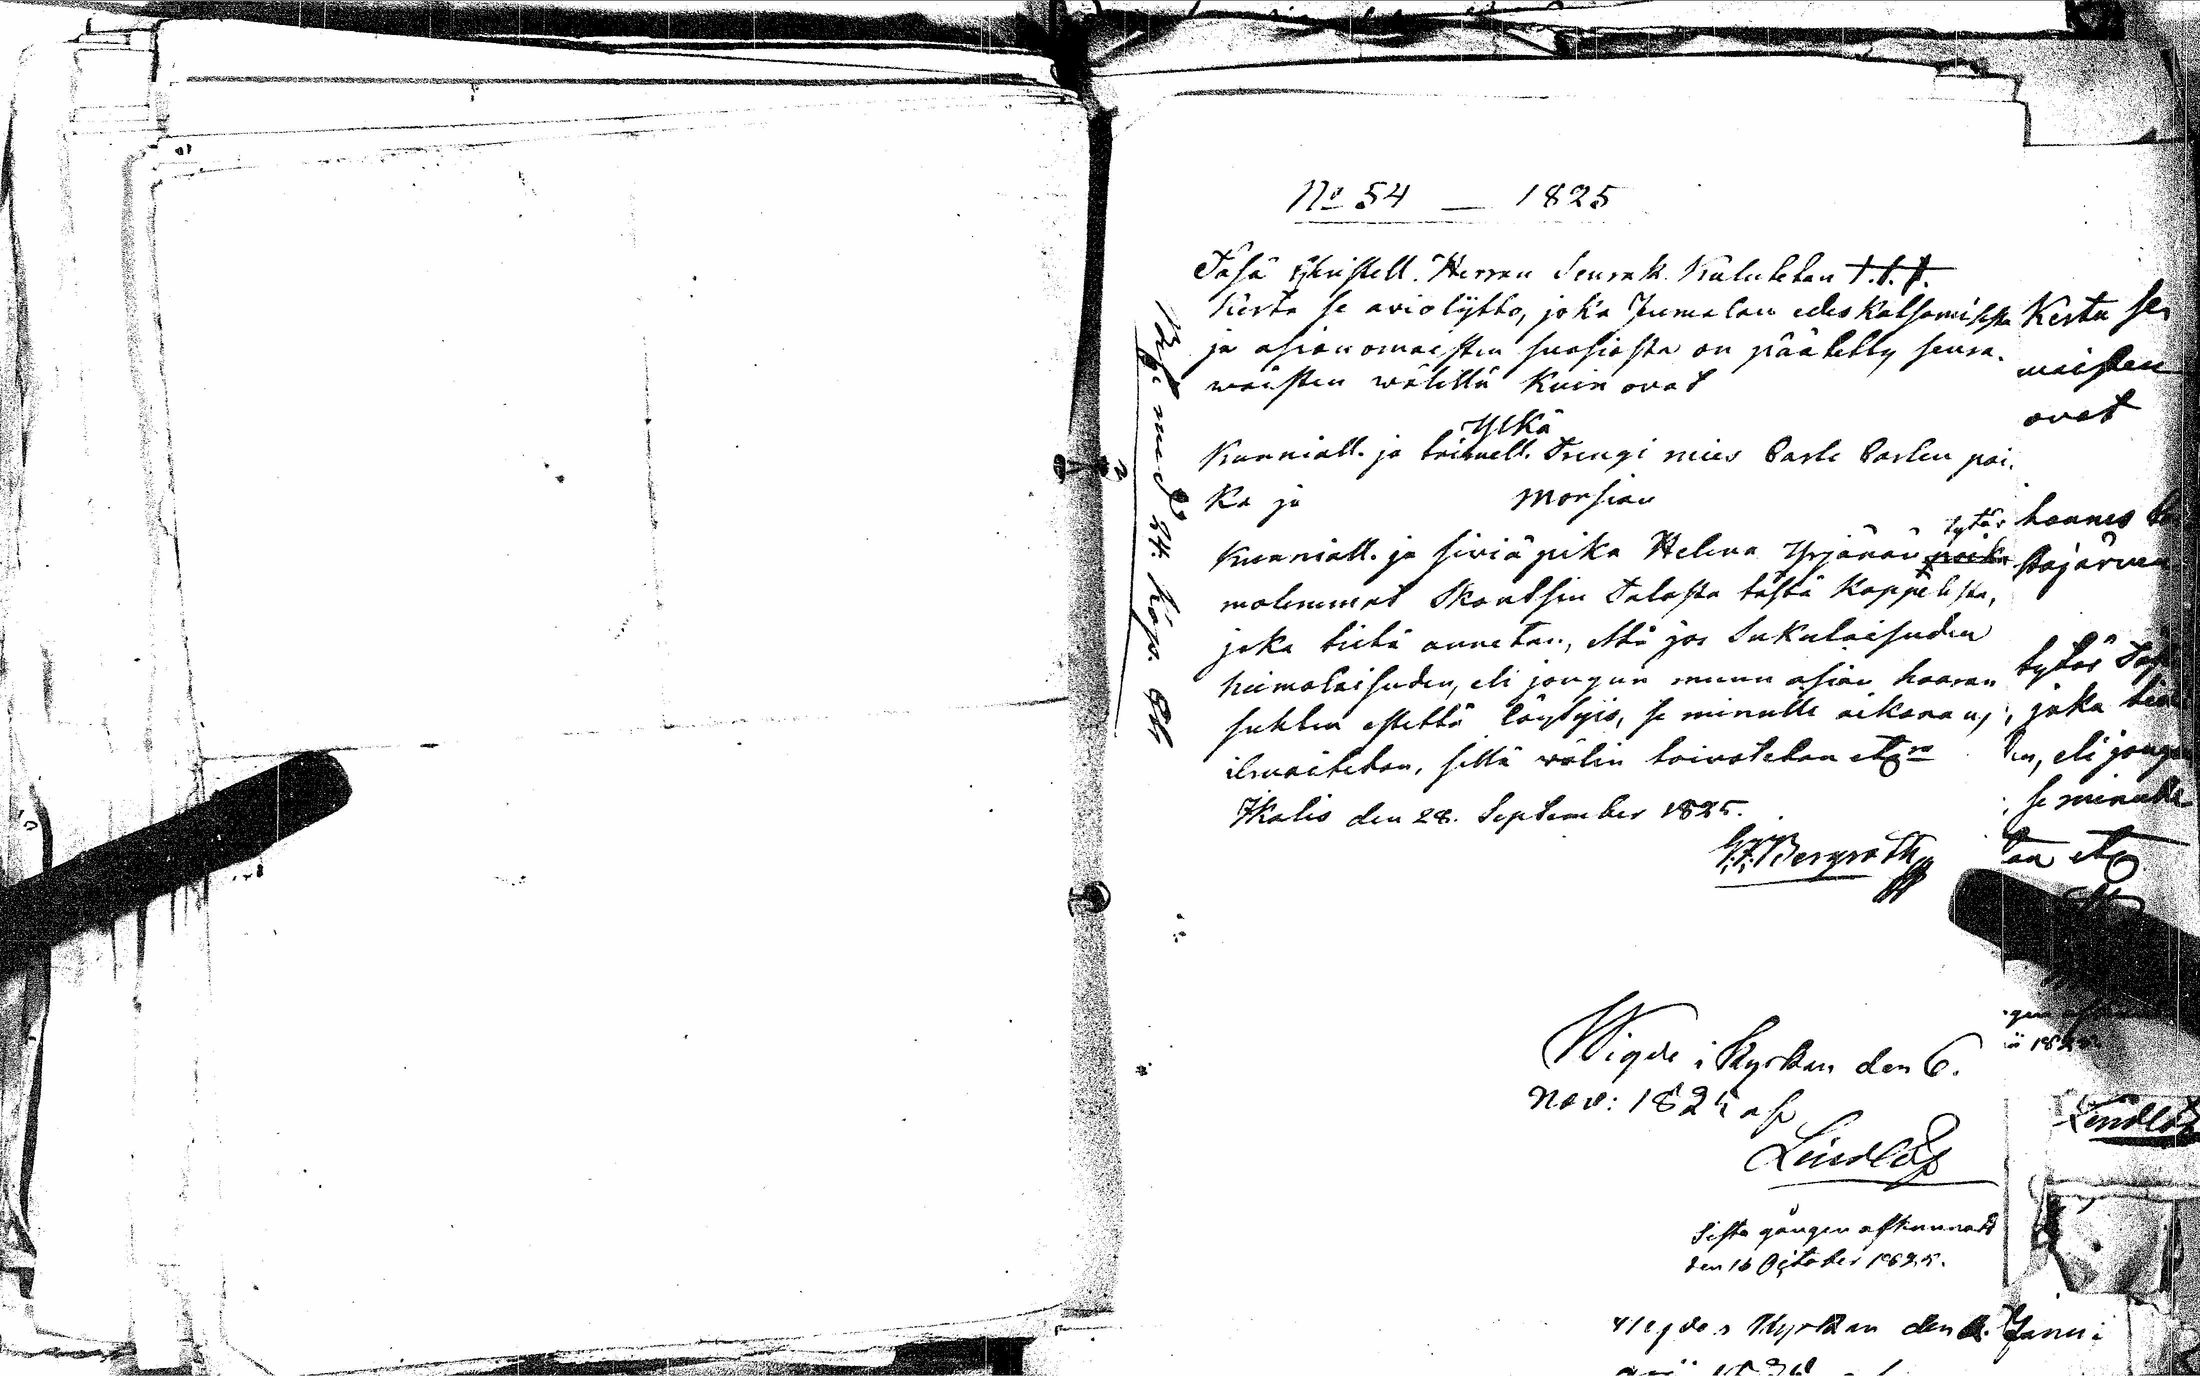 No 54 — 1825
Täsä Christell. Herran Seurak. Kulutetan t.t.t.
kerta se aviolijtto, joka Jumalan edeskatsomisesta
ja asianomaisten suosiosta on päätetty seura-
waisten wälillä kuin ovat
Ylkä
Kunniall. ja toimell. Trengi mies Carle Carlen poi-
ka ja Morsian
tytär
Kunniall. ja siviä pika Helena Yrjänän poika
molemmat Skantsin Talosta tästä Kappelista,
joka tietä annetan, että jos Sukulaisuden
heimolaisuden, eli jongun muun asian haaran
suhten estettä löytyis, se minulle aikanans
ilmoitetan, sillä wälin toivotetan etc
Ikalis den 28. September 1825.
G.F. Bergroth
med 24 Kop.
Wigde i Kyrkan den 6.
Nov: 1825 af
Lindlöf
Sista gången afkunnadt
den 16 October 1825.
Kyrkan den Janu:
Kerta se
waisten
ovat
hannes
tajärwen
tytär
, joka tie
en, eli jongun
se minulle
tan etc
Lindlöf